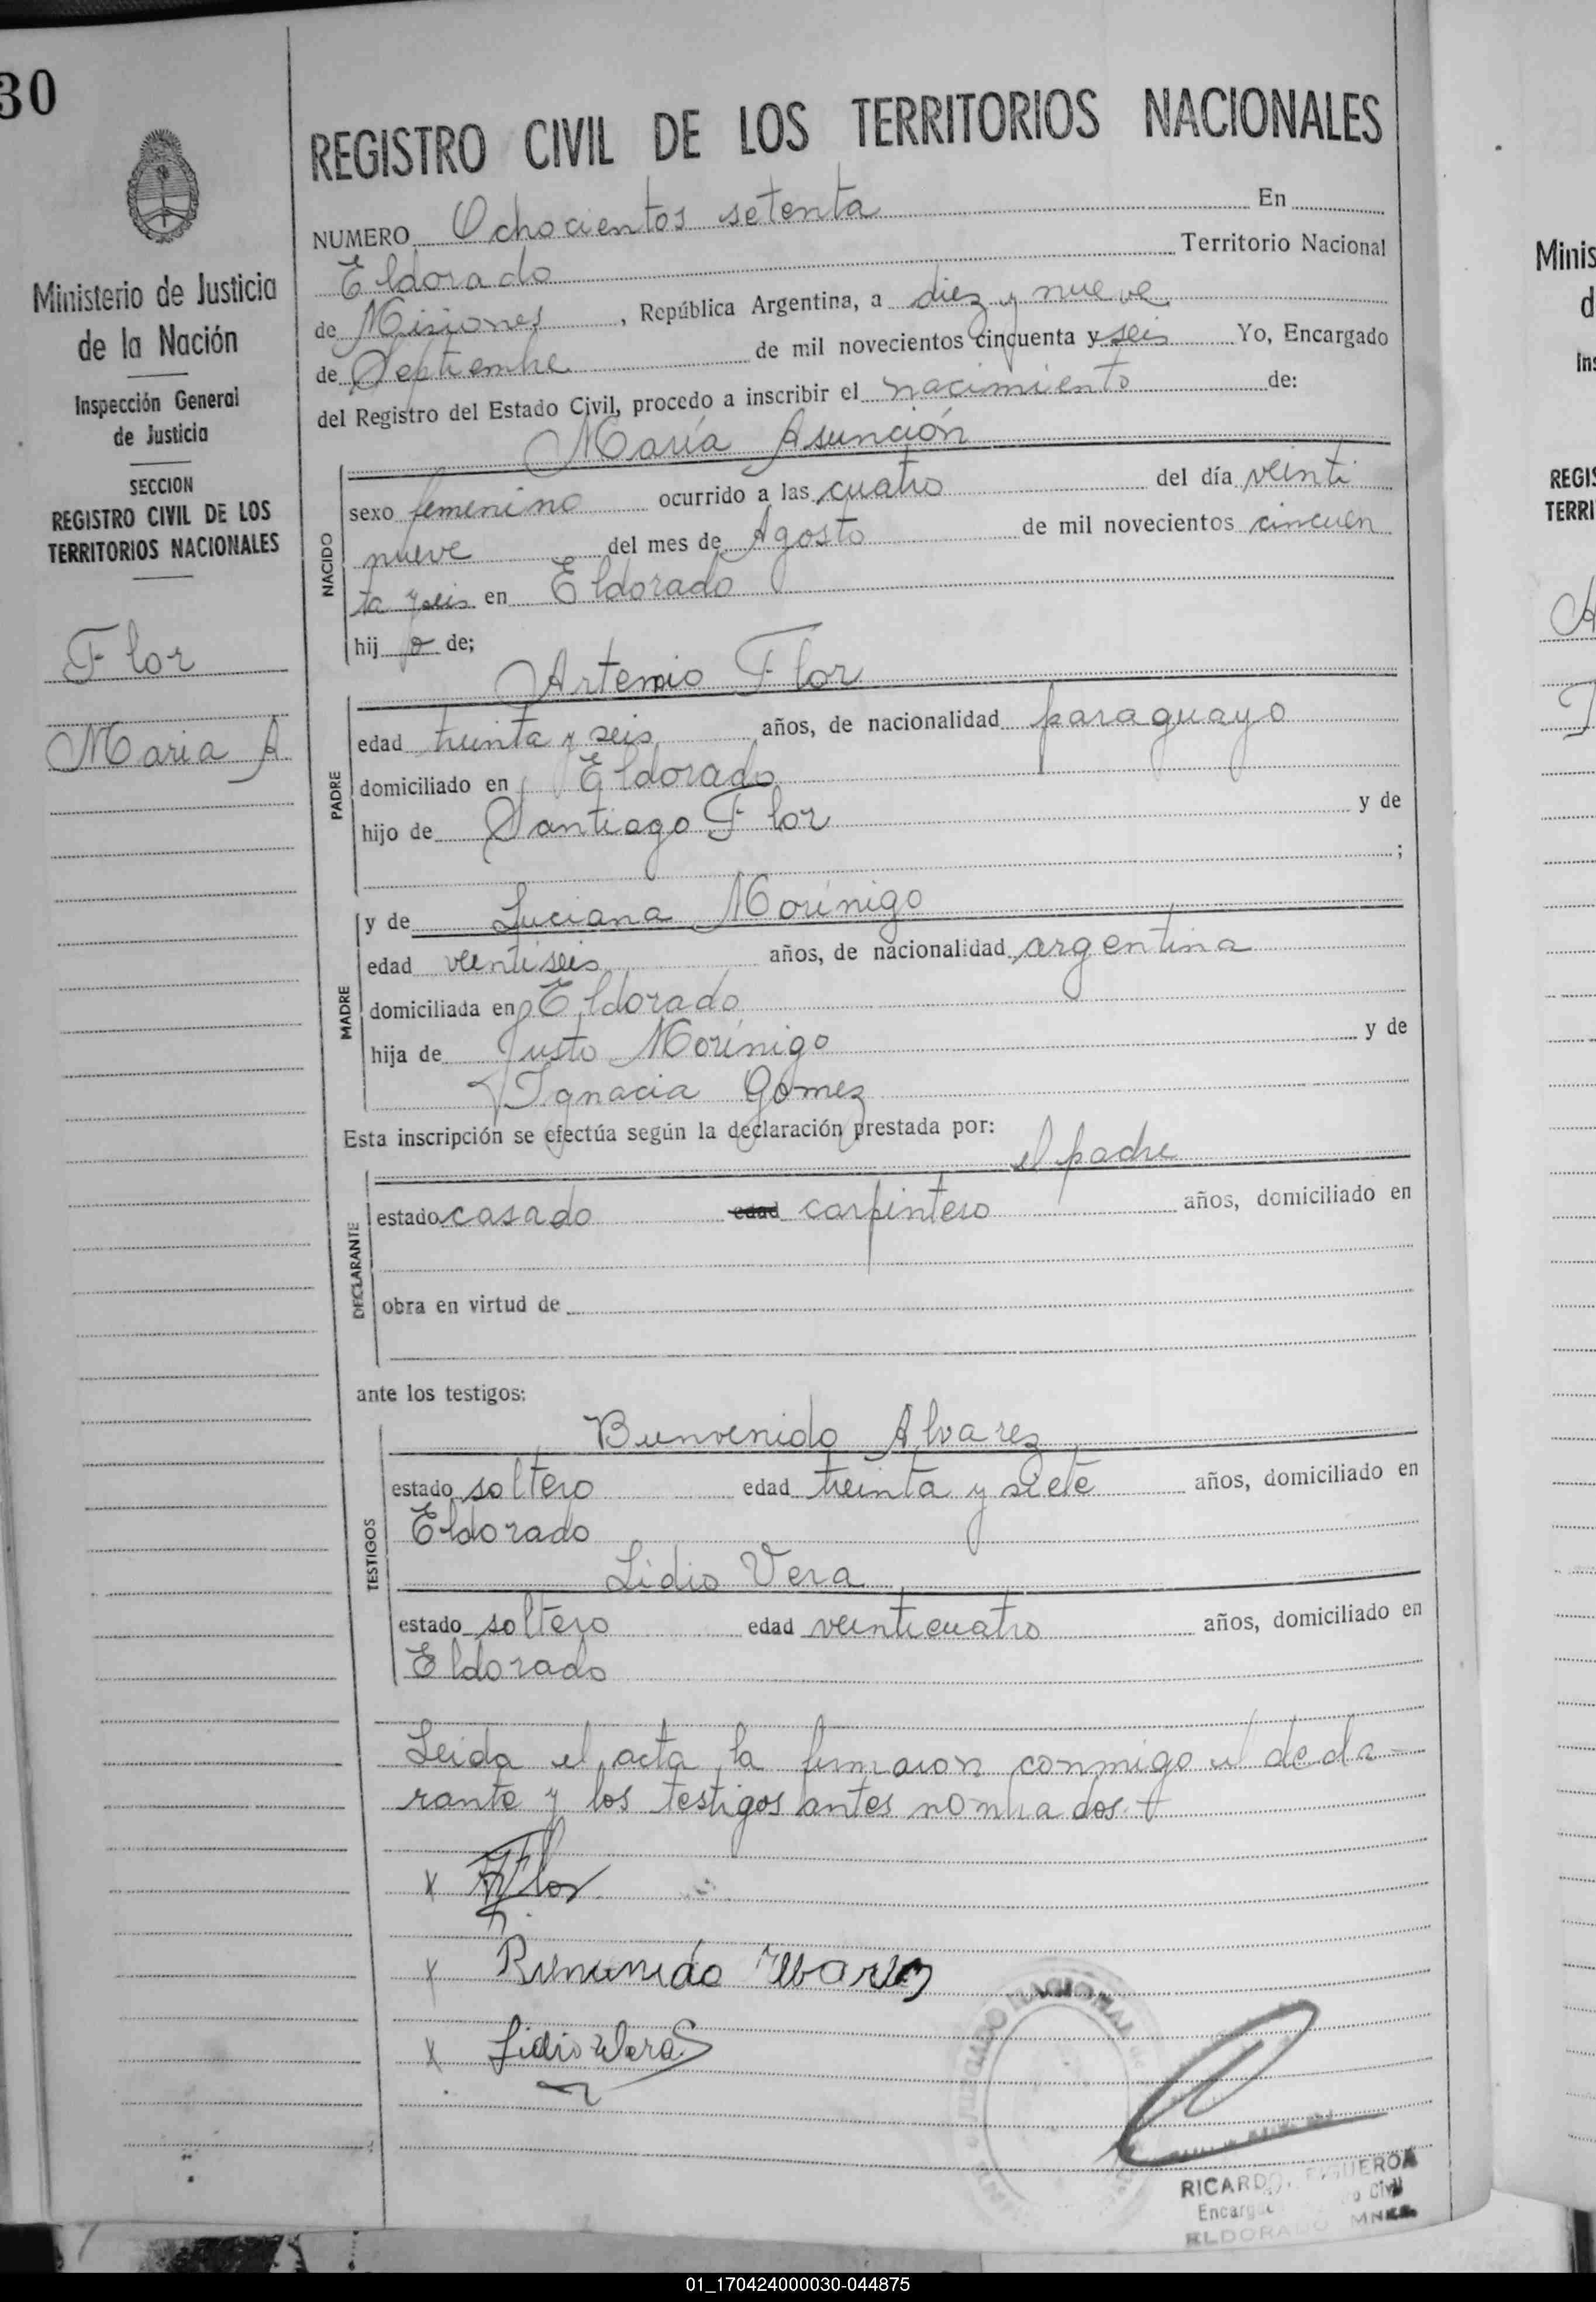 30
REGISTRO CIVIL DE LOS TERRITORIOS NACIONALES
Ministerio de Justicia
de la Nación
Inspección General
de Justicia
SECCION
REGISTRO CIVIL DE LOS
TERRITORIOS NACIONALES
Flor
Maria A
NUMERO Ochocientos setenta En
Eldorado Territorio Nacional
de Misiones, República Argentina, a diez y nueve
de Septiembre de mil novecientos cincuenta y seis Yo, Encargado
del Registro del Estado Civil, procedo a inscribir el nacimiento de:
María Asunción
NACIDO
sexo femenino ocurrido a las cuatro del día veinti
nueve del mes de Agosto de mil novecientos cincuen
ta y seis en Eldorado
hij a de;
Artemio Flor
PADRE
edad treinta y seis años, de nacionalidad paraguayo
domiciliado en Eldorado
hijo de Santiago Flor y de
;
y de Luciana Morínigo
MADRE
edad veintiseis años, de nacionalidad argentina
domiciliada en Eldorado
hija de Justo Morínigo y de
Ignacia Gomez
Esta inscripción se efectúa según la declaración prestada por:
el padre
DECLARANTE
estado casado edad carpintero años, domiciliado en
obra en virtud de
ante los testigos:
Bienvenido Alvarez
TESTIGOS
estado soltero edad treinta y siete años, domiciliado en
Eldorado
Lidio Vera
estado soltero edad veinticuatro años, domiciliado en
Eldorado
Leida el acta la firmaron conmigo el decla-
rante y los testigos antes nombrados.
x Flor
x Bienvenido Alvarez
x Lidio Vera
RICARDO FIGUEROA
ELDORADO MNES.
Minis
d
Ins
REGIS
TERRI
01_170424000030-044875